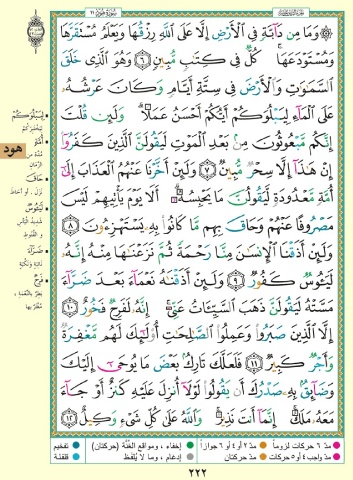 سورة هود ١١
وَمَا مِن دَآبَّةٍ فِى ٱلْأَرْضِ إِلَّا عَلَى ٱللَّهِ رِزْقُهَا وَيَعْلَمُ مُسْتَقَرَّهَا
وَمُسْتَوْدَعَهَا ۚ كُلٌّ فِى كِتَٰبٍ مُّبِينٍ ٦ وَهُوَ ٱلَّذِى خَلَقَ
ٱلسَّمَٰوَٰتِ وَٱلْأَرْضَ فِى سِتَّةِ أَيَّامٍ وَكَانَ عَرْشُهُۥ
عَلَى ٱلْمَآءِ لِيَبْلُوَكُمْ أَيُّكُمْ أَحْسَنُ عَمَلًا ۗ وَلَئِن قُلْتَ
إِنَّكُم مَّبْعُوثُونَ مِنۢ بَعْدِ ٱلْمَوْتِ لَيَقُولَنَّ ٱلَّذِينَ كَفَرُوٓا۟
إِنْ هَٰذَآ إِلَّا سِحْرٌ مُّبِينٌ ٧ وَلَئِنْ أَخَّرْنَا عَنْهُمُ ٱلْعَذَابَ إِلَىٰٓ
أُمَّةٍ مَّعْدُودَةٍ لَّيَقُولُنَّ مَا يَحْبِسُهُۥٓ ۗ أَلَا يَوْمَ يَأْتِيهِمْ لَيْسَ
مَصْرُوفًا عَنْهُمْ وَحَاقَ بِهِم مَّا كَانُوا۟ بِهِۦ يَسْتَهْزِءُونَ ٨
وَلَئِنْ أَذَقْنَا ٱلْإِنسَٰنَ مِنَّا رَحْمَةً ثُمَّ نَزَعْنَٰهَا مِنْهُ إِنَّهُۥ
لَيَـُٔوسٌ كَفُورٌ ٩ وَلَئِنْ أَذَقْنَٰهُ نَعْمَآءَ بَعْدَ ضَرَّآءَ
مَسَّتْهُ لَيَقُولَنَّ ذَهَبَ ٱلسَّيِّـَٔاتُ عَنِّىٓ ۚ إِنَّهُۥ لَفَرِحٌ فَخُورٌ ١٠
إِلَّا ٱلَّذِينَ صَبَرُوا۟ وَعَمِلُوا۟ ٱلصَّٰلِحَٰتِ أُو۟لَٰٓئِكَ لَهُم مَّغْفِرَةٌ
وَأَجْرٌ كَبِيرٌ ١١ فَلَعَلَّكَ تَارِكٌۢ بَعْضَ مَا يُوحَىٰٓ إِلَيْكَ
وَضَآئِقٌۢ بِهِۦ صَدْرُكَ أَن يَقُولُوا۟ لَوْلَآ أُنزِلَ عَلَيْهِ كَنزٌ أَوْ جَآءَ
مَعَهُۥ مَلَكٌ ۚ إِنَّمَآ أَنتَ نَذِيرٌ ۚ وَٱللَّهُ عَلَىٰ كُلِّ شَىْءٍ وَكِيلٌ ١٢
هود
لِيَبْلُوَكُمْ
أُمَّةٍ
حَاقَ
لَيَـُٔوسٌ
ضَرَّآءَ
لَفَرِحٌ
مدّ ٦ حركات لزوماً مدّ ٢ أو ٤ أو ٦ جوازاً إخفاء، ومواقع الغُنَّة (حركتان) تفخيم
مدّ واجب ٤ أو ٥ حركات مدّ حركتان إدغام، وما لا يُلفَظ قلقلة
٢٢٢